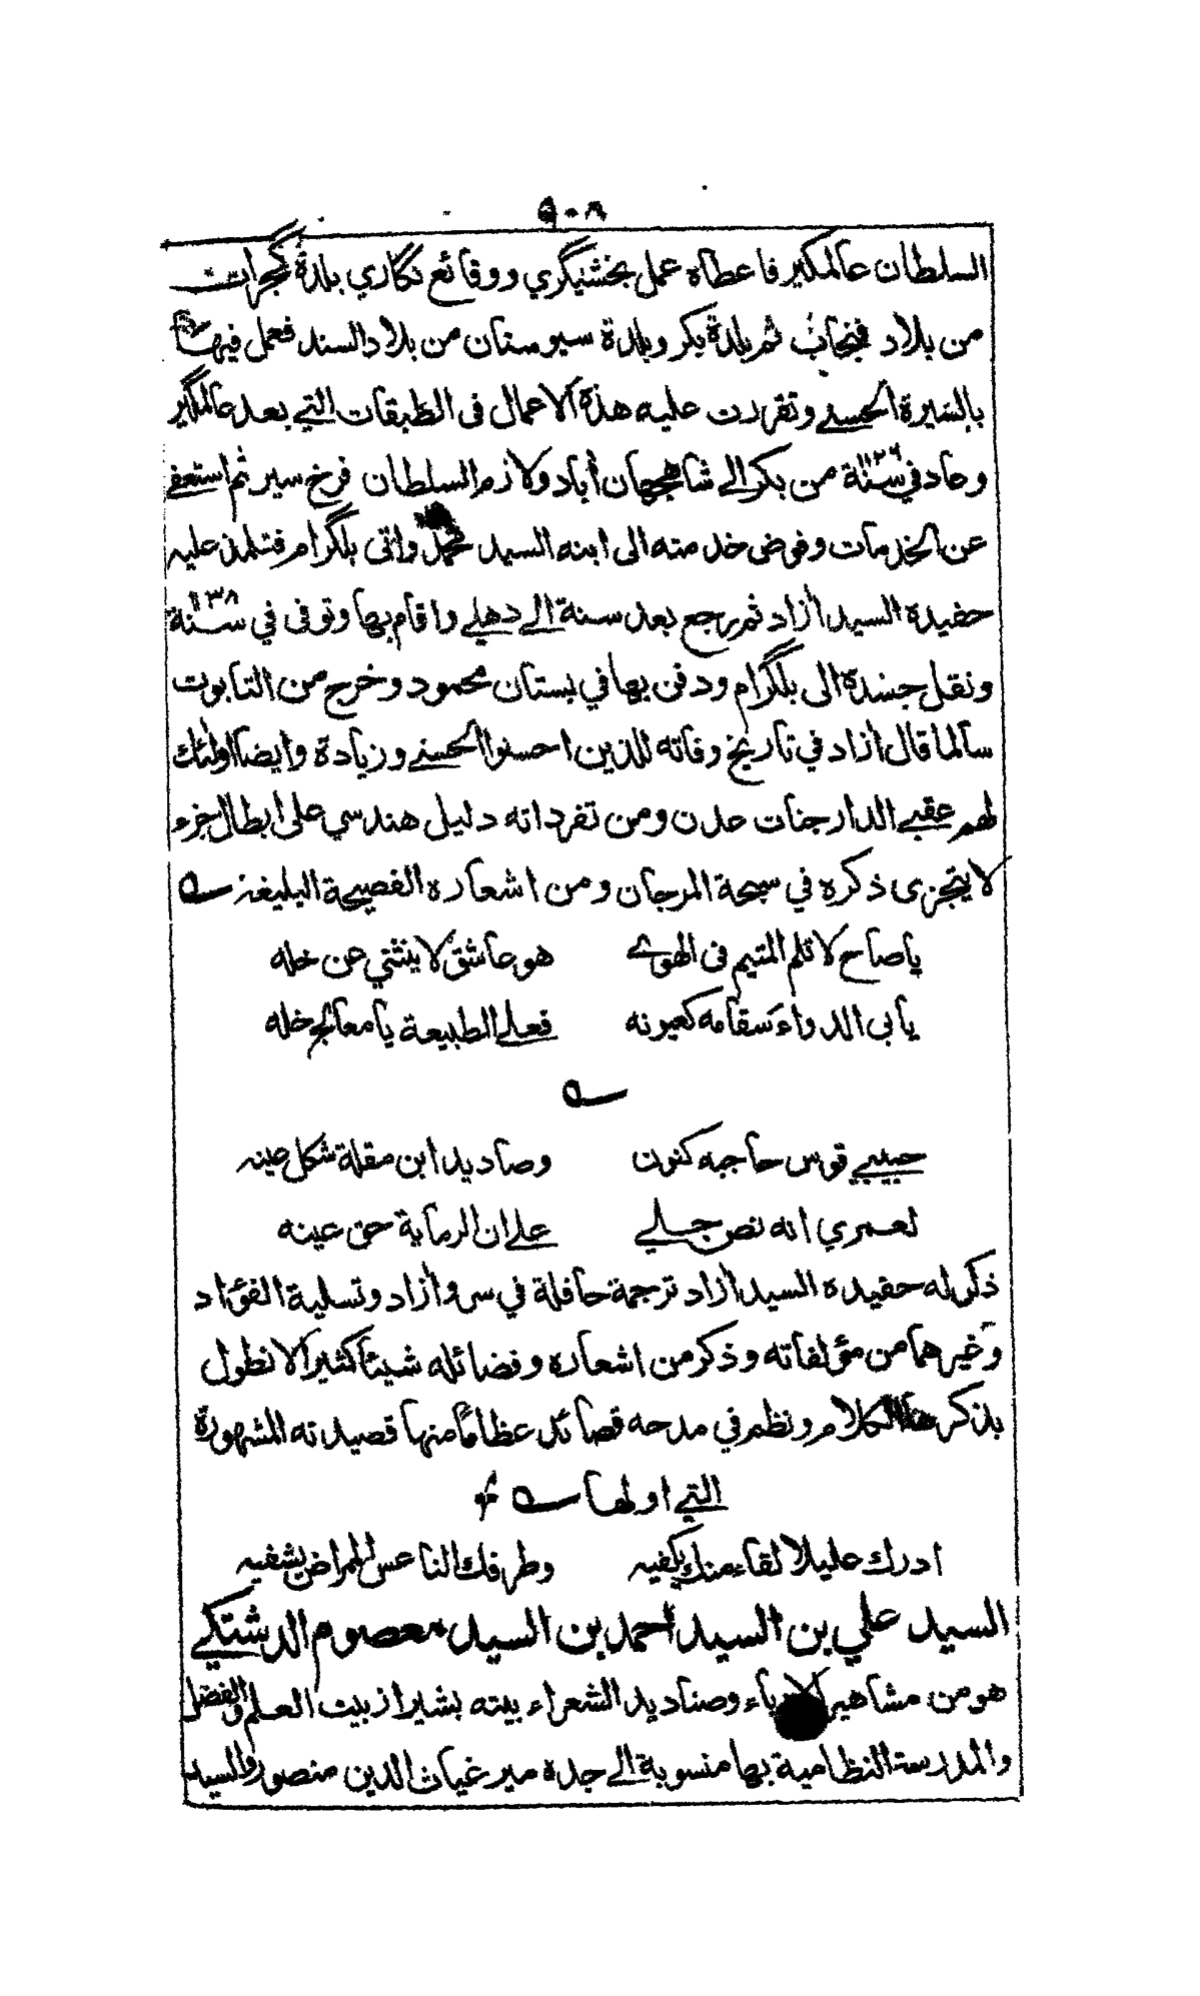 ٩٠٨
السلطان عالمكير فاعطاه عمل بخشيگري ووقائع نگاري بلدة گجرات
من بلاد فنجاب ثم بلدة بكر وبلدة سيوستان من بلاد السند فعمل فيها
بالسيرة الحسنے وتقررت عليه هذه الاعمال فى الطبقات التي بعد عالمگير
وعاد في سنة ١١٢٦ من بكر الے شاهجهان أباد ولازم السلطان فرخ سير ثم استعفے
عن الخدمات وفوض خدمته الى ابنه السيد محمد واتى بلگرام فتلمذ عليه
حفيده السيد أزاد ثم رجع بعد سنة الے دهلے واقام بها وتوفى في سنة ١١٣٨
ونقل جسده الى بلگرام ودفن بها في بستان محمود وخرج من التابوت
سالما قال أزاد في تاريخ وفاته للذين احسنوا الحسنے وزيادة وايضا اولئك
لهم عقبے الدار جنات عدن ومن تفرداته دليل هندسي على ابطال جزء
لا يتجزى ذكره في سبحة المرجان ومن اشعاره الفصيحة البليغة ؎
ياصاح لا تلم المتيم فى الهوے هو عاشق لا ينثني عن خله
يابى الدواء سقامه كعيونه فعلے الطبيعة يا معالج خله
؎
حبيبے قوس حاجبه كنون وصاد يد ابن مقلة شكل عينه
لعمري انه نص جلي علے ان الرماية حق عينه
ذكر له حفيده السيد أزاد ترجمة حافلة في سرو أزاد وتسلية الفؤاد
وغيرهما من مؤلفاته وذكر من اشعاره وفضائله شيئا كثيرا لا نطول
بذكره الكلام ونظم في مدحه قصائد عظاما منها قصيدته المشهورة
التي اولها ؎
ادرك عليلا لقاء منك يكفيه وطرفك الناعس الممراض يشفيه
السيد علي بن السيد احمد بن السيد معصوم الدشتكے
هو من مشاهير الادباء وصناديد الشعراء بيته بشيراز بيت العلم والفضل
والمدرسة النظامية بها منسوبة الے جده مير غياث الدين منصور والسيد